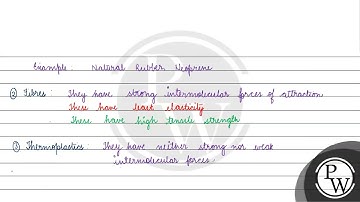 Example: Natural Rubber Neoprene
② Fibres: They have strong intermolecular forces of attraction
These have least elasticity
These have high tensile strength
③ Thermoplastics: They have neither strong nor weak
intermolecular forces
P
W
P
W